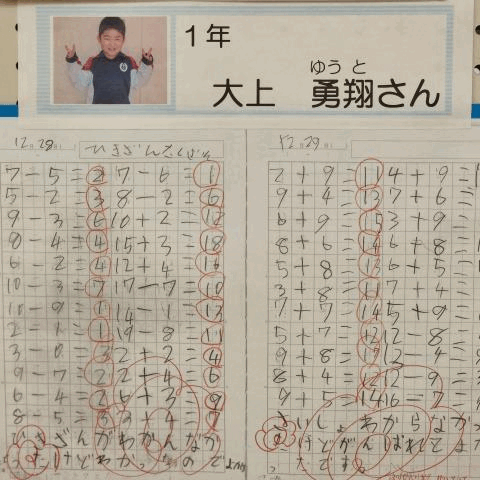 1年
ゆう と
大上 勇翔さん
12月28日
ひきざんたしざん
7-5=2 7-6=1
5-2=3 8-2=6
9-3=6 10+2=12
8-4=4 15+3=18
6-2=4 12+4=16
10-3=7 17-7=10
10-9=1 14-1=13
2-1=1 19-8=11
3-0=3 2+2=4
9-7=2 2+4=6
6-4=2 6+3=9
8-5=3 3+4=7
ひきざんがわかんなか
ったけどわかったのでよかった
12月29日
2+9=11 4+9=
9+4=13 7+6=
6+9=15 3+9=
8+6=14 6+8=
5+8=13 6+5=
3+8=11 7+4=
7+7=14 5+9=
5+7=12 12-8=
9+8=17 12-4=
8+4=12 12-9=
9+5=14 16-7=
さいしょわからなか
ったけどがんばれて
たです。